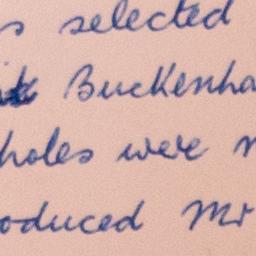 s selected
Buckenha
holes were n
oduced Mr